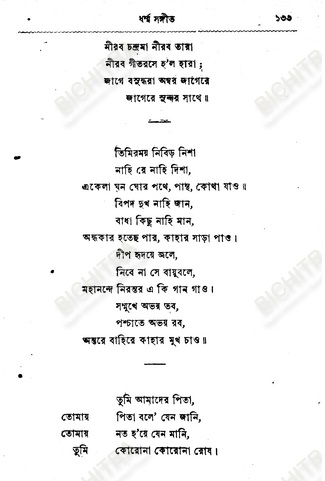 ধর্ম্ম সঙ্গীত ১৩৯
নীরব চন্দ্রমা নীরব তারা
নীরব গীতরসে হ'ল হারা ;
জাগে বসুন্ধরা অম্বর জাগেরে
জাগেরে সুন্দর সাথে ॥
তিমিরময় নিবিড় নিশা
নাহি রে নাহি দিশা,
একেলা ঘন ঘোর পথে, পান্থ, কোথা যাও ॥
বিপদ দুখ নাহি জান,
বাধা কিছু নাহি মান,
অন্ধকার হতেছ পার, কাহার সাড়া পাও ।
দীপ হৃদয়ে জ্বলে,
নিবে না সে বায়ুবলে,
মহানন্দে নিরন্তর এ কি গান গাও ।
সম্মুখে অভয় তব,
পশ্চাতে অভয় রব,
অন্তরে বাহিরে কাহার মুখ চাও ॥
তুমি আমাদের পিতা,
তোমায় পিতা বলে' যেন জানি,
তোমায় নত হ'য়ে যেন মানি,
তুমি কোরোনা কোরোনা রোষ ।
BICHITRA